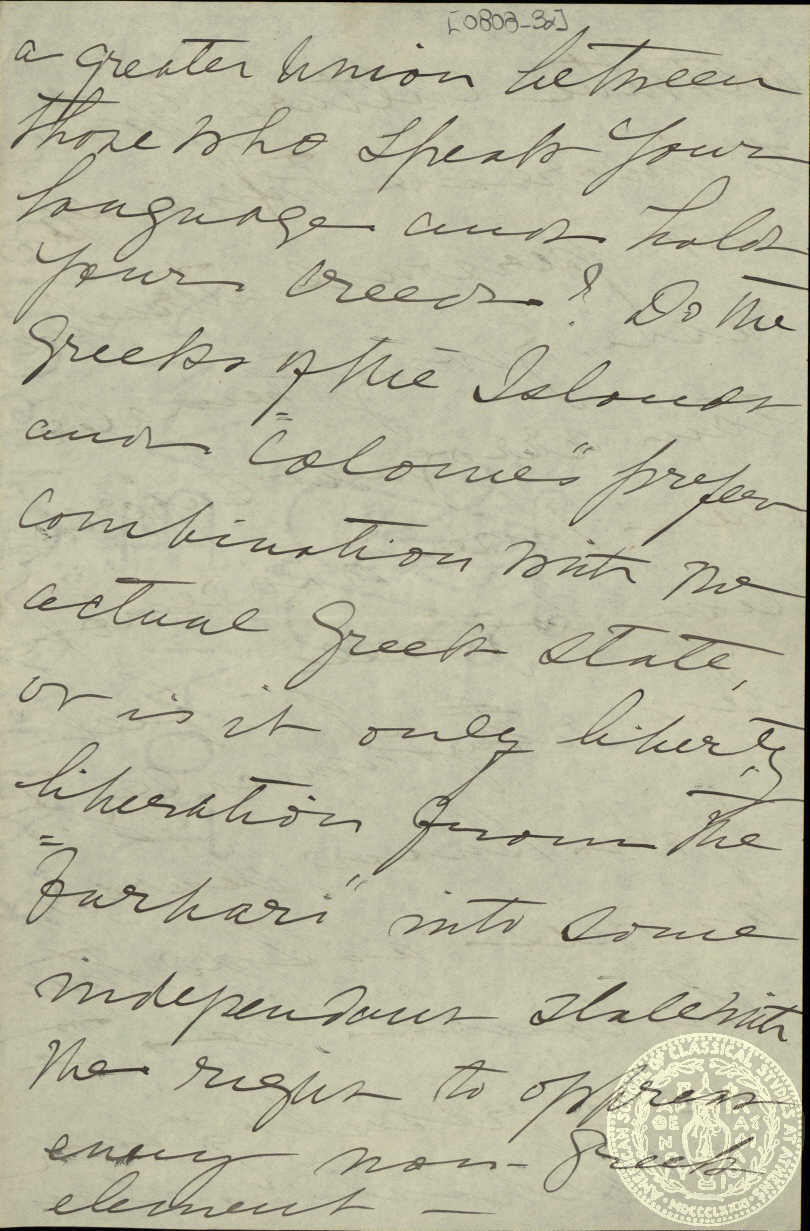 [0803-32]
a greater union between
those who speak your
language and hold
your creeds? Do the
Greeks of the Islands
and "colonies" prefer
combination with the
actual Greek state,
or is it only liberty,
liberation from the
"barbari" into some
independant state with
the right to oppress
every non-Greek
element –
AMERICAN SCHOOL OF CLASSICAL STUDIES AT ATHENS
MDCCCLXXXI